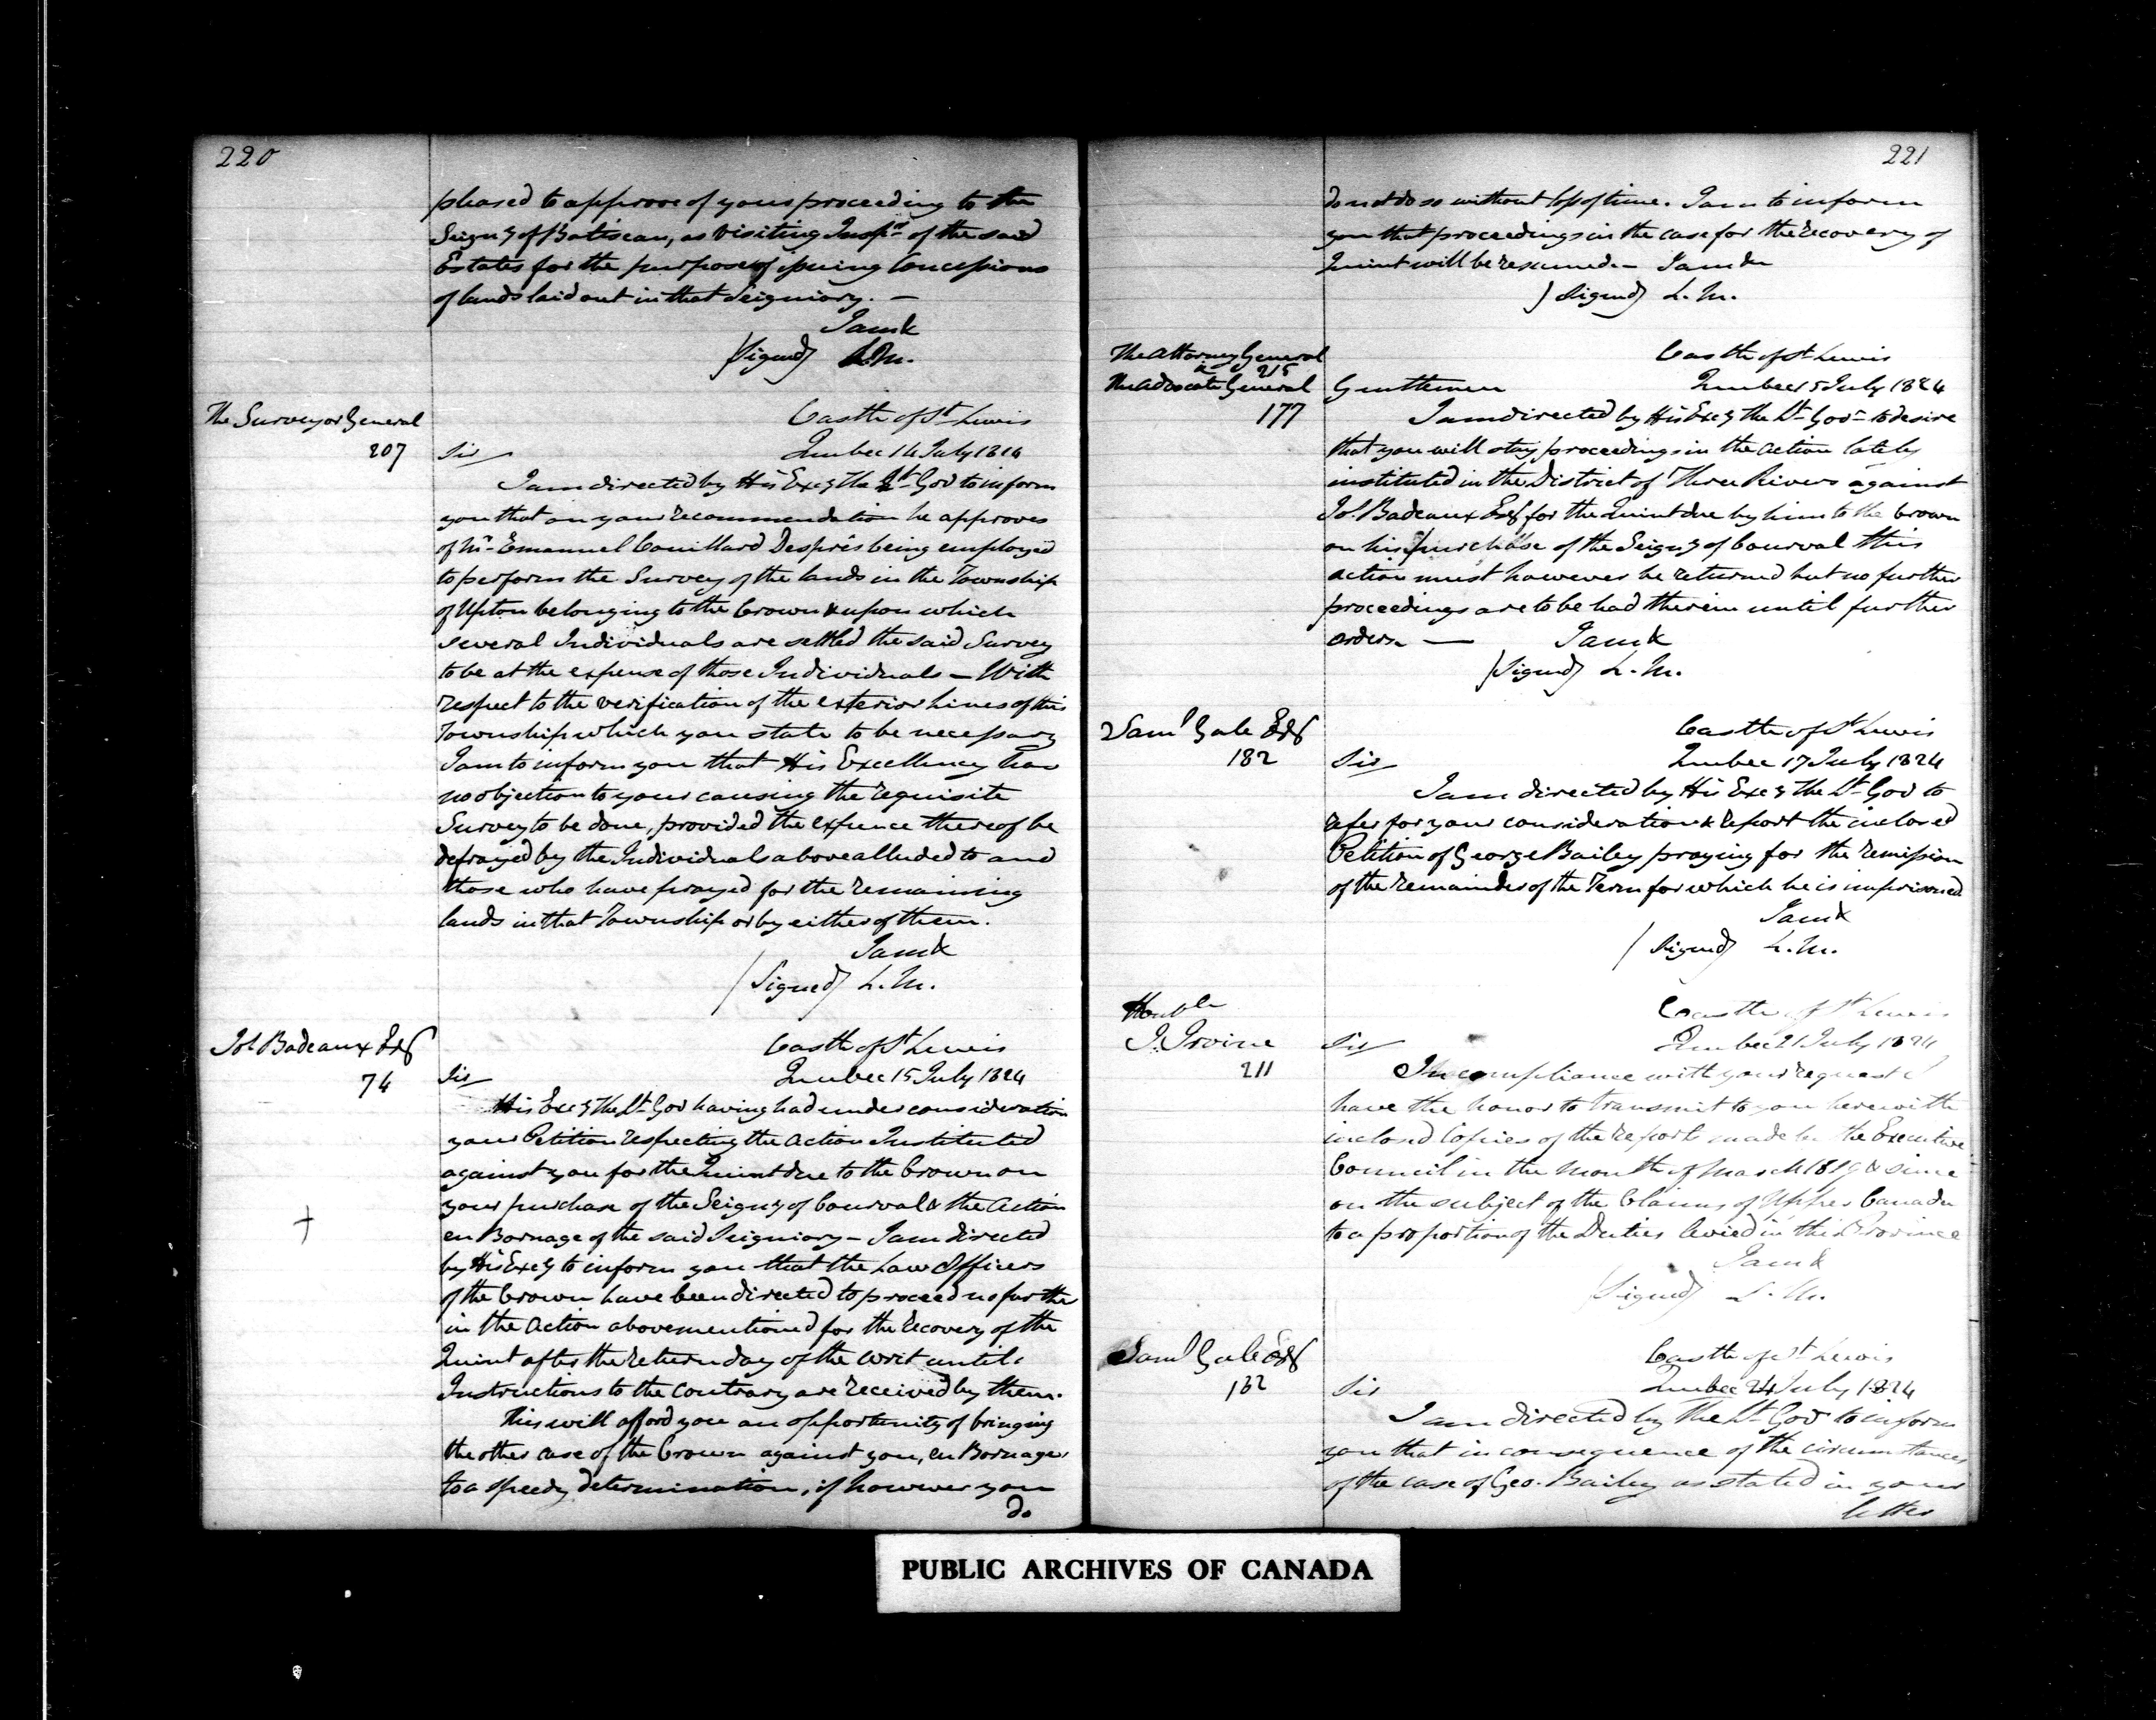 220
pleased to approve of your proceeding to the
Seigny of Batiscan, as Visiting Inspr of the said
Estates for the purpose of issuing Concessions
of lands laid out in that Seigniory. —
I am &
(Signed) L.M.
The Surveyor General
207
Castle of St Lewis
Sir Quebec 14 July 1824
I am directed by His Excy the Lt Gov to inform
you that on your recommendation he approves
of Mr Emanuel Couillard Després being employed
to perform the Survey of the lands in the Township
of Upton belonging to the Crown & upon which
several Individuals are settled the said Survey
to be at the expense of those Individuals — With
respect to the verification of the exterior Lines of this
Township which you state to be necessary
I am to inform you that His Excellency has
no objection to your causing the requisite
Survey to be done, provided the expence thereof be
defrayed by the Individuals above alluded to and
those who have prayed for the remaining
lands in that Township or by either of them.
I am &
(Signed) L.M.
Jos. Badeaux Esq
74
Castle of St Lewis
Sir Quebec 15 July 1824
His Excy the Lt Gov having had under consideration
your Petition respecting the action Instituted
against you for the Quint due to the Crown on
your purchase of the Seigny of Courval & the Action
en Bornage of the said Seigniory — I am directed
by His Excy to inform you that the Law Officers
of the Crown have been directed to proceed no further
in the Action abovementioned for the recovery of the
Quint after the return day of the writ until
Instructions to the contrary are received by them.
This will afford you an opportunity of bringing
the other case of the Crown against you, en Bornage
to a speedy determination, if however you
do
221
do not do so without loss of time. I am to inform
you that proceedings in the case for the recovery of
Quint will be resumed. — I am &
(Signed) L.M.
The Attorney General
& 215
The Advocate General
177
Castle of St Lewis
Gentlemen Quebec 15 July 1824
I am directed by His Excy the Lt Govr to desire
that you will stay proceedings in the action lately
instituted in the District of Three Rivers against
Jos. Badeaux Esq for the Quint due by him to the Crown
on his purchase of the Seigny of Courval this
action must however be returned but no further
proceedings are to be had therein until further
orders. — I am &
(Signed) L.M.
Saml Gale Esq
182
Castle of St Lewis
Sir Quebec 17 July 1824
I am directed by His Excy the Lt Gov to
refer for your consideration & report the inclosed
Petition of George Bailey praying for the remission
of the remainder of the Term for which he is imprisoned
I am &
(Signed) L.M.
Honble
J. Irvine
211
Castle of St Lewis
Sir Quebec 21 July 1824
In compliance with your request I
have the honor to transmit to you herewith
inclosed Copies of the reports made by the Executive
Council in the month of March 1819 & since
on the subject of the Claims of Upper Canada
to a proportion of the Duties levied in this Province
I am &
(Signed) L.M.
Saml Gale Esq
182
Castle of St Lewis
Sir Quebec 24 July 1824
I am directed by the Lt Gov to inform
you that in consequence of the circumstances
of the case of Geo. Bailey as stated in your
letter
PUBLIC ARCHIVES OF CANADA